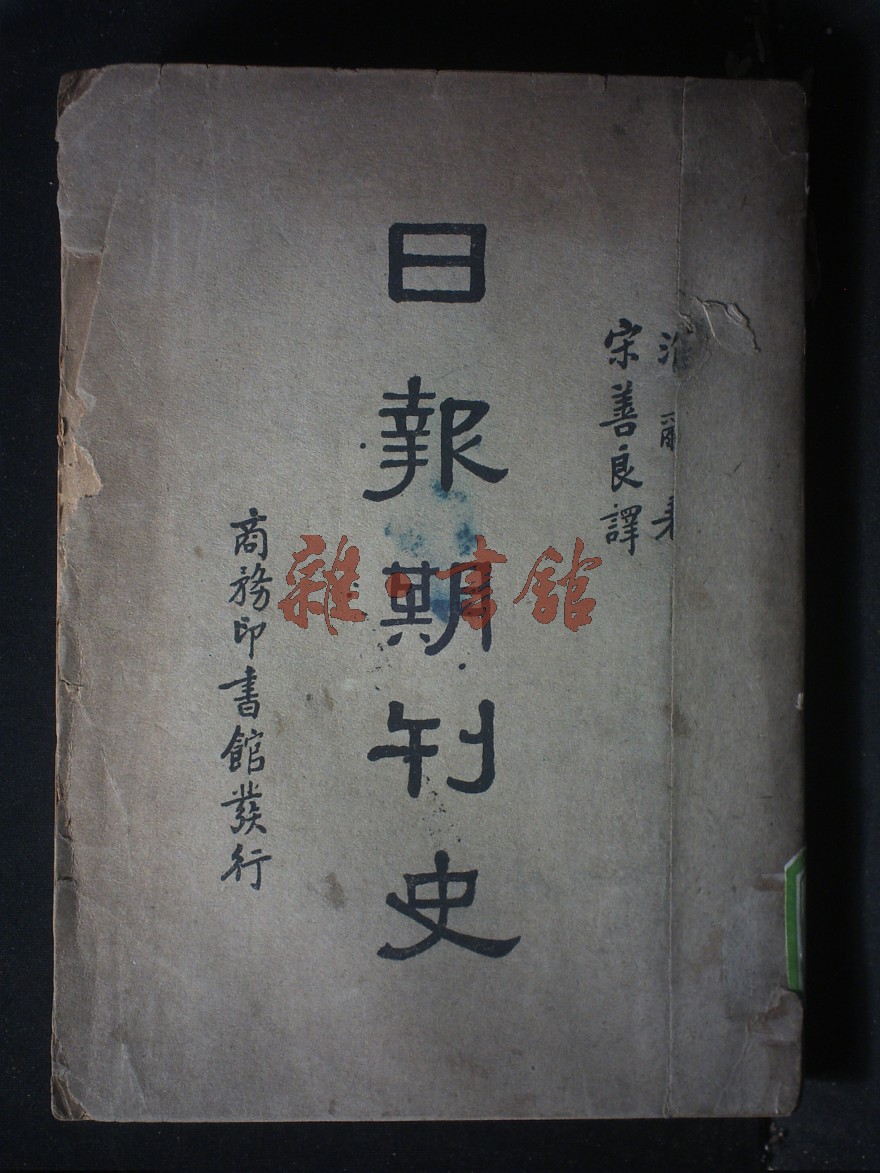 淮爾著
宋善良譯
日報期刊史
雜·書館
商務印書館發行